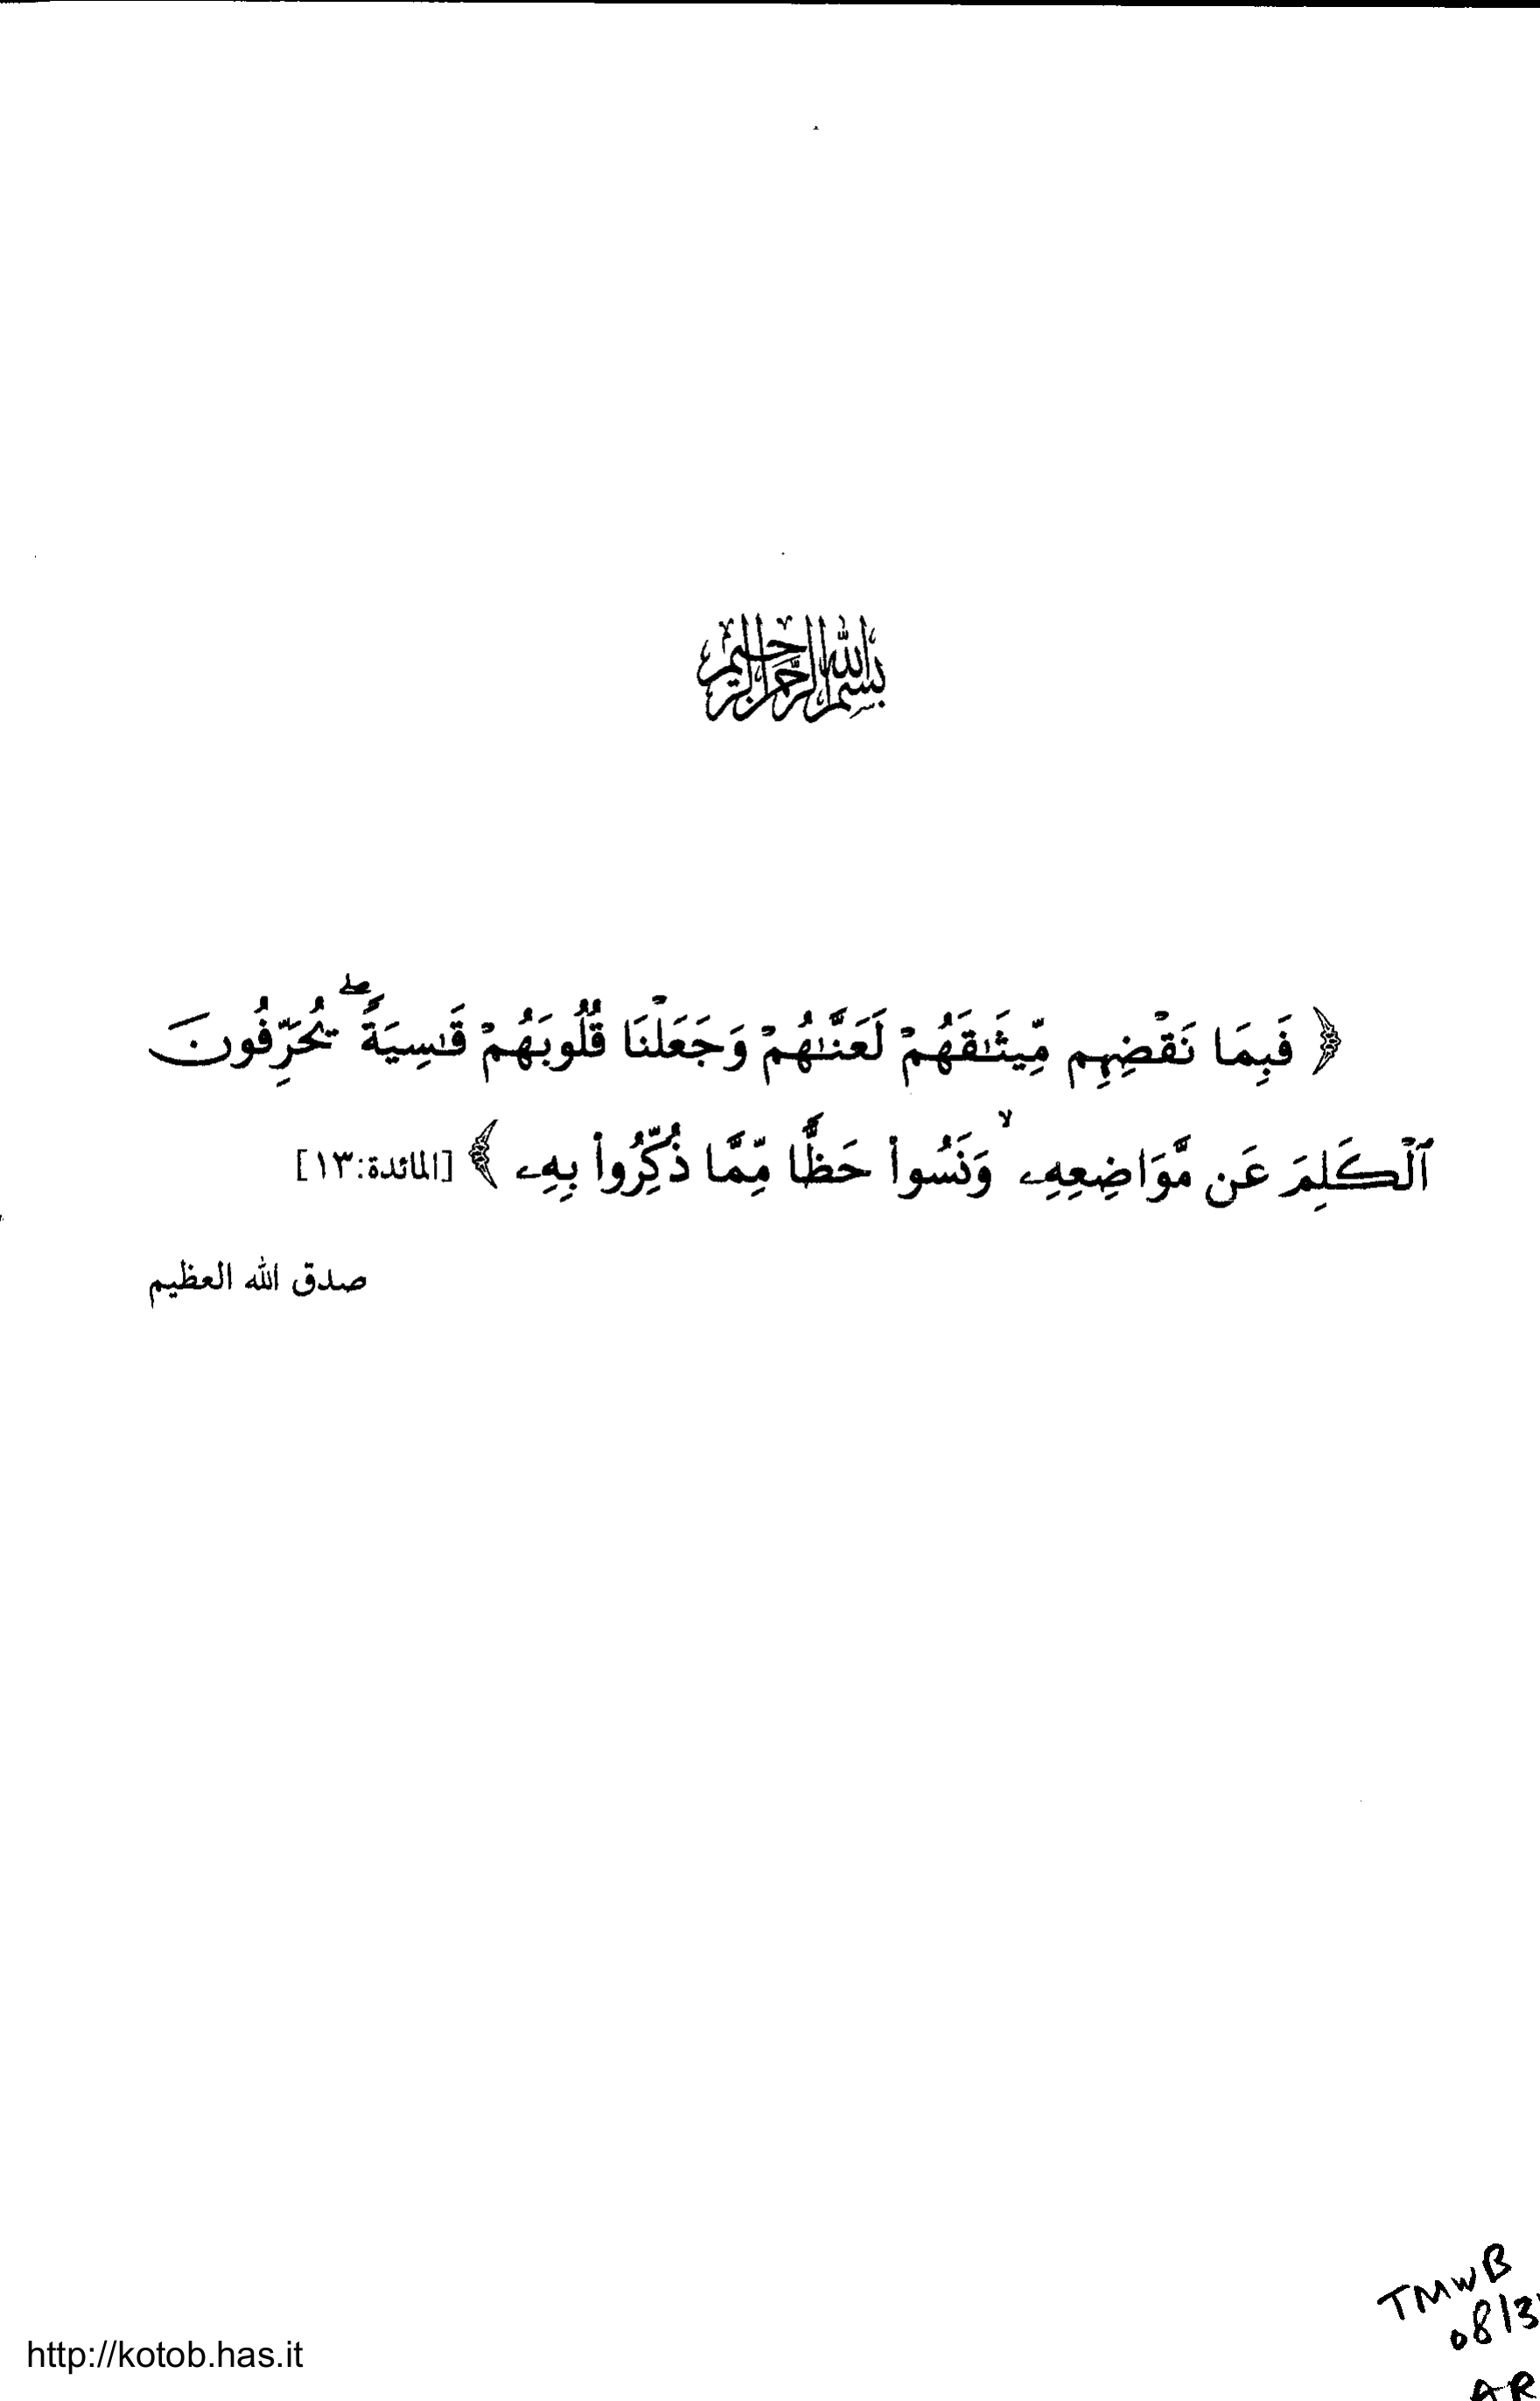 بسم الله الرحمن الرحيم
﴿ فَبِمَا نَقْضِهِم مِّيثَٰقَهُمْ لَعَنَّٰهُمْ وَجَعَلْنَا قُلُوبَهُمْ قَٰسِيَةً ۖ يُحَرِّفُونَ
ٱلْكَلِمَ عَن مَّوَاضِعِهِۦ ۙ وَنَسُوا۟ حَظًّا مِّمَّا ذُكِّرُوا۟ بِهِۦ ﴾ [المائدة:١٣]
صدق الله العظيم
TMWB
http://kotob.has.it
AR